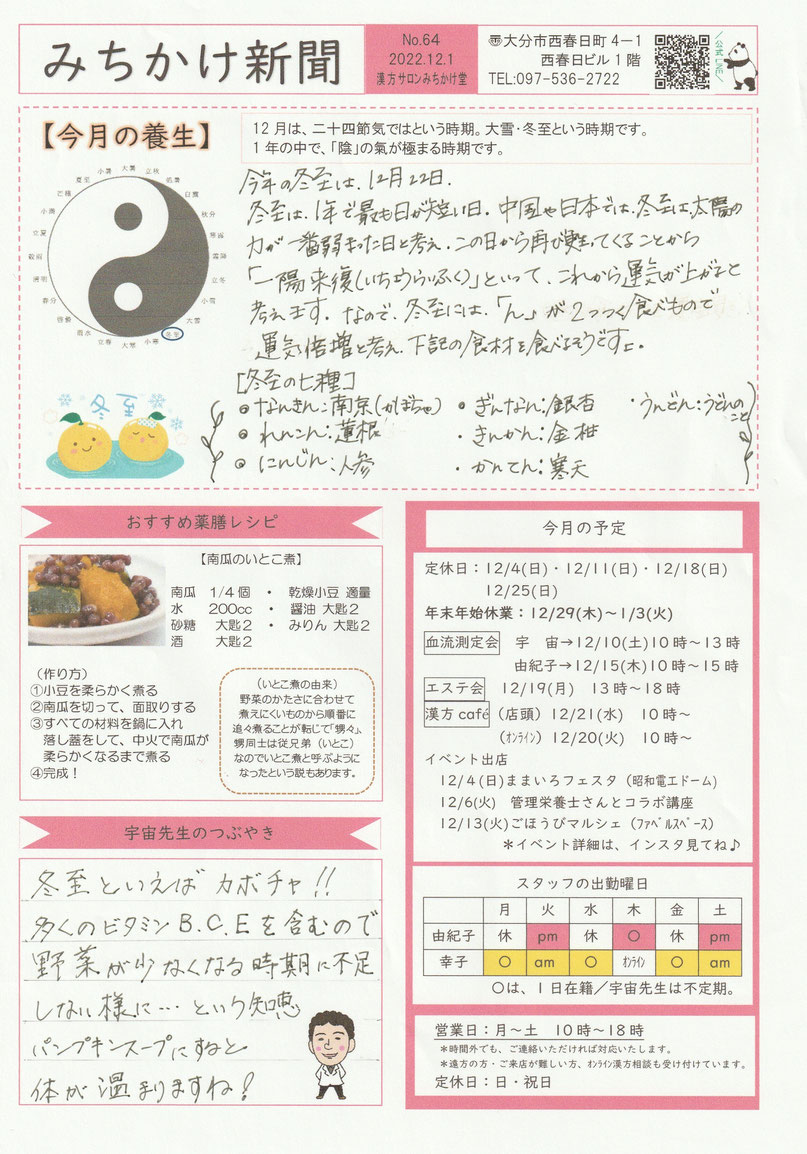 みちかけ新聞
No.64
2022.12.1
漢方サロンみちかけ堂
〠大分市西春日町4ー1
西春日ビル1階
TEL:097-536-2722
公式LINE
【今月の養生】
12月は、二十四節気ではという時期。大雪・冬至という時期です。
1年の中で、「陰」の氣が極まる時期です。
大暑
立秋
処暑
白露
秋分
寒露
霜降
立冬
小雪
大雪
冬至
小寒
大寒
立春
雨水
啓蟄
春分
清明
穀雨
立夏
小満
芒種
夏至
小暑
冬至
今年の冬至は、12月22日.
冬至は、1年で最も日が短い日. 中国や日本では、冬至は太陽の
力が一番弱まった日と考え、この日から再び甦ってくることから
「一陽来復(いちようらいふく)」といって、これから運気が上がると
考えます. なので、冬至には、「ん」が2つつく食べもので
運気倍増と考え、下記の食材を食べるそうですよ.
[冬至の七種]
・なんきん:南京(かぼちゃ) ・ぎんなん:銀杏 ・うんどん:うどんのこと
・れんこん:蓮根 ・きんかん:金柑
・にんじん:人参 ・かんてん:寒天
おすすめ薬膳レシピ
【南瓜のいとこ煮】
南瓜 1/4個 ・ 乾燥小豆 適量
水 200cc ・ 醤油 大匙2
砂糖 大匙2 ・ みりん 大匙2
酒 大匙2
（作り方）
①小豆を柔らかく煮る
②南瓜を切って、面取りする
③すべての材料を鍋に入れ
落し蓋をして、中火で南瓜が
柔らかくなるまで煮る
④完成！
（いとこ煮の由来）
野菜のかたさに合わせて
煮えにくいものから順番に
追々煮ることが転じて「甥々」。
甥同士は従兄弟（いとこ）
なのでいとこ煮と呼ぶように
なったという説もあります。
宇宙先生のつぶやき
冬至といえば カボチャ!!
多くのビタミンB.C.Eを含むので
野菜が少なくなる時期に不足
しない様に… という知恵
パンプキンスープにすると
体が温まりますね！
今月の予定
定休日：12/4(日)・12/11(日)・12/18(日)
12/25(日)
年末年始休業：12/29(木)～1/3(火)
血流測定会 宇 宙→12/10(土)10時～13時
由紀子→12/15(木)10時～15時
エステ会 12/19(月) 13時～18時
漢方café（店頭）12/21(水) 10時～
（ｵﾝﾗｲﾝ）12/20(火) 10時～
イベント出店
12/4(日)ままいろフェスタ（昭和電工ドーム）
12/6(火) 管理栄養士さんとコラボ講座
12/13(火)ごほうびマルシェ（ﾌｧﾍﾞﾙｽﾍﾟｰｽ）
＊イベント詳細は、インスタ見てね♪
スタッフの出勤曜日
月 火 水 木 金 土
由紀子 休 pm 休 〇 休 pm
幸子 〇 am 〇 ｵﾝﾗｲﾝ 〇 am
〇は、1日在籍／宇宙先生は不定期。
営業日：月～土 10時～18時
＊時間外でも、ご連絡いただければ対応いたします。
＊遠方の方・ご来店が難しい方、ｵﾝﾗｲﾝ漢方相談も受け付けています。
定休日：日・祝日